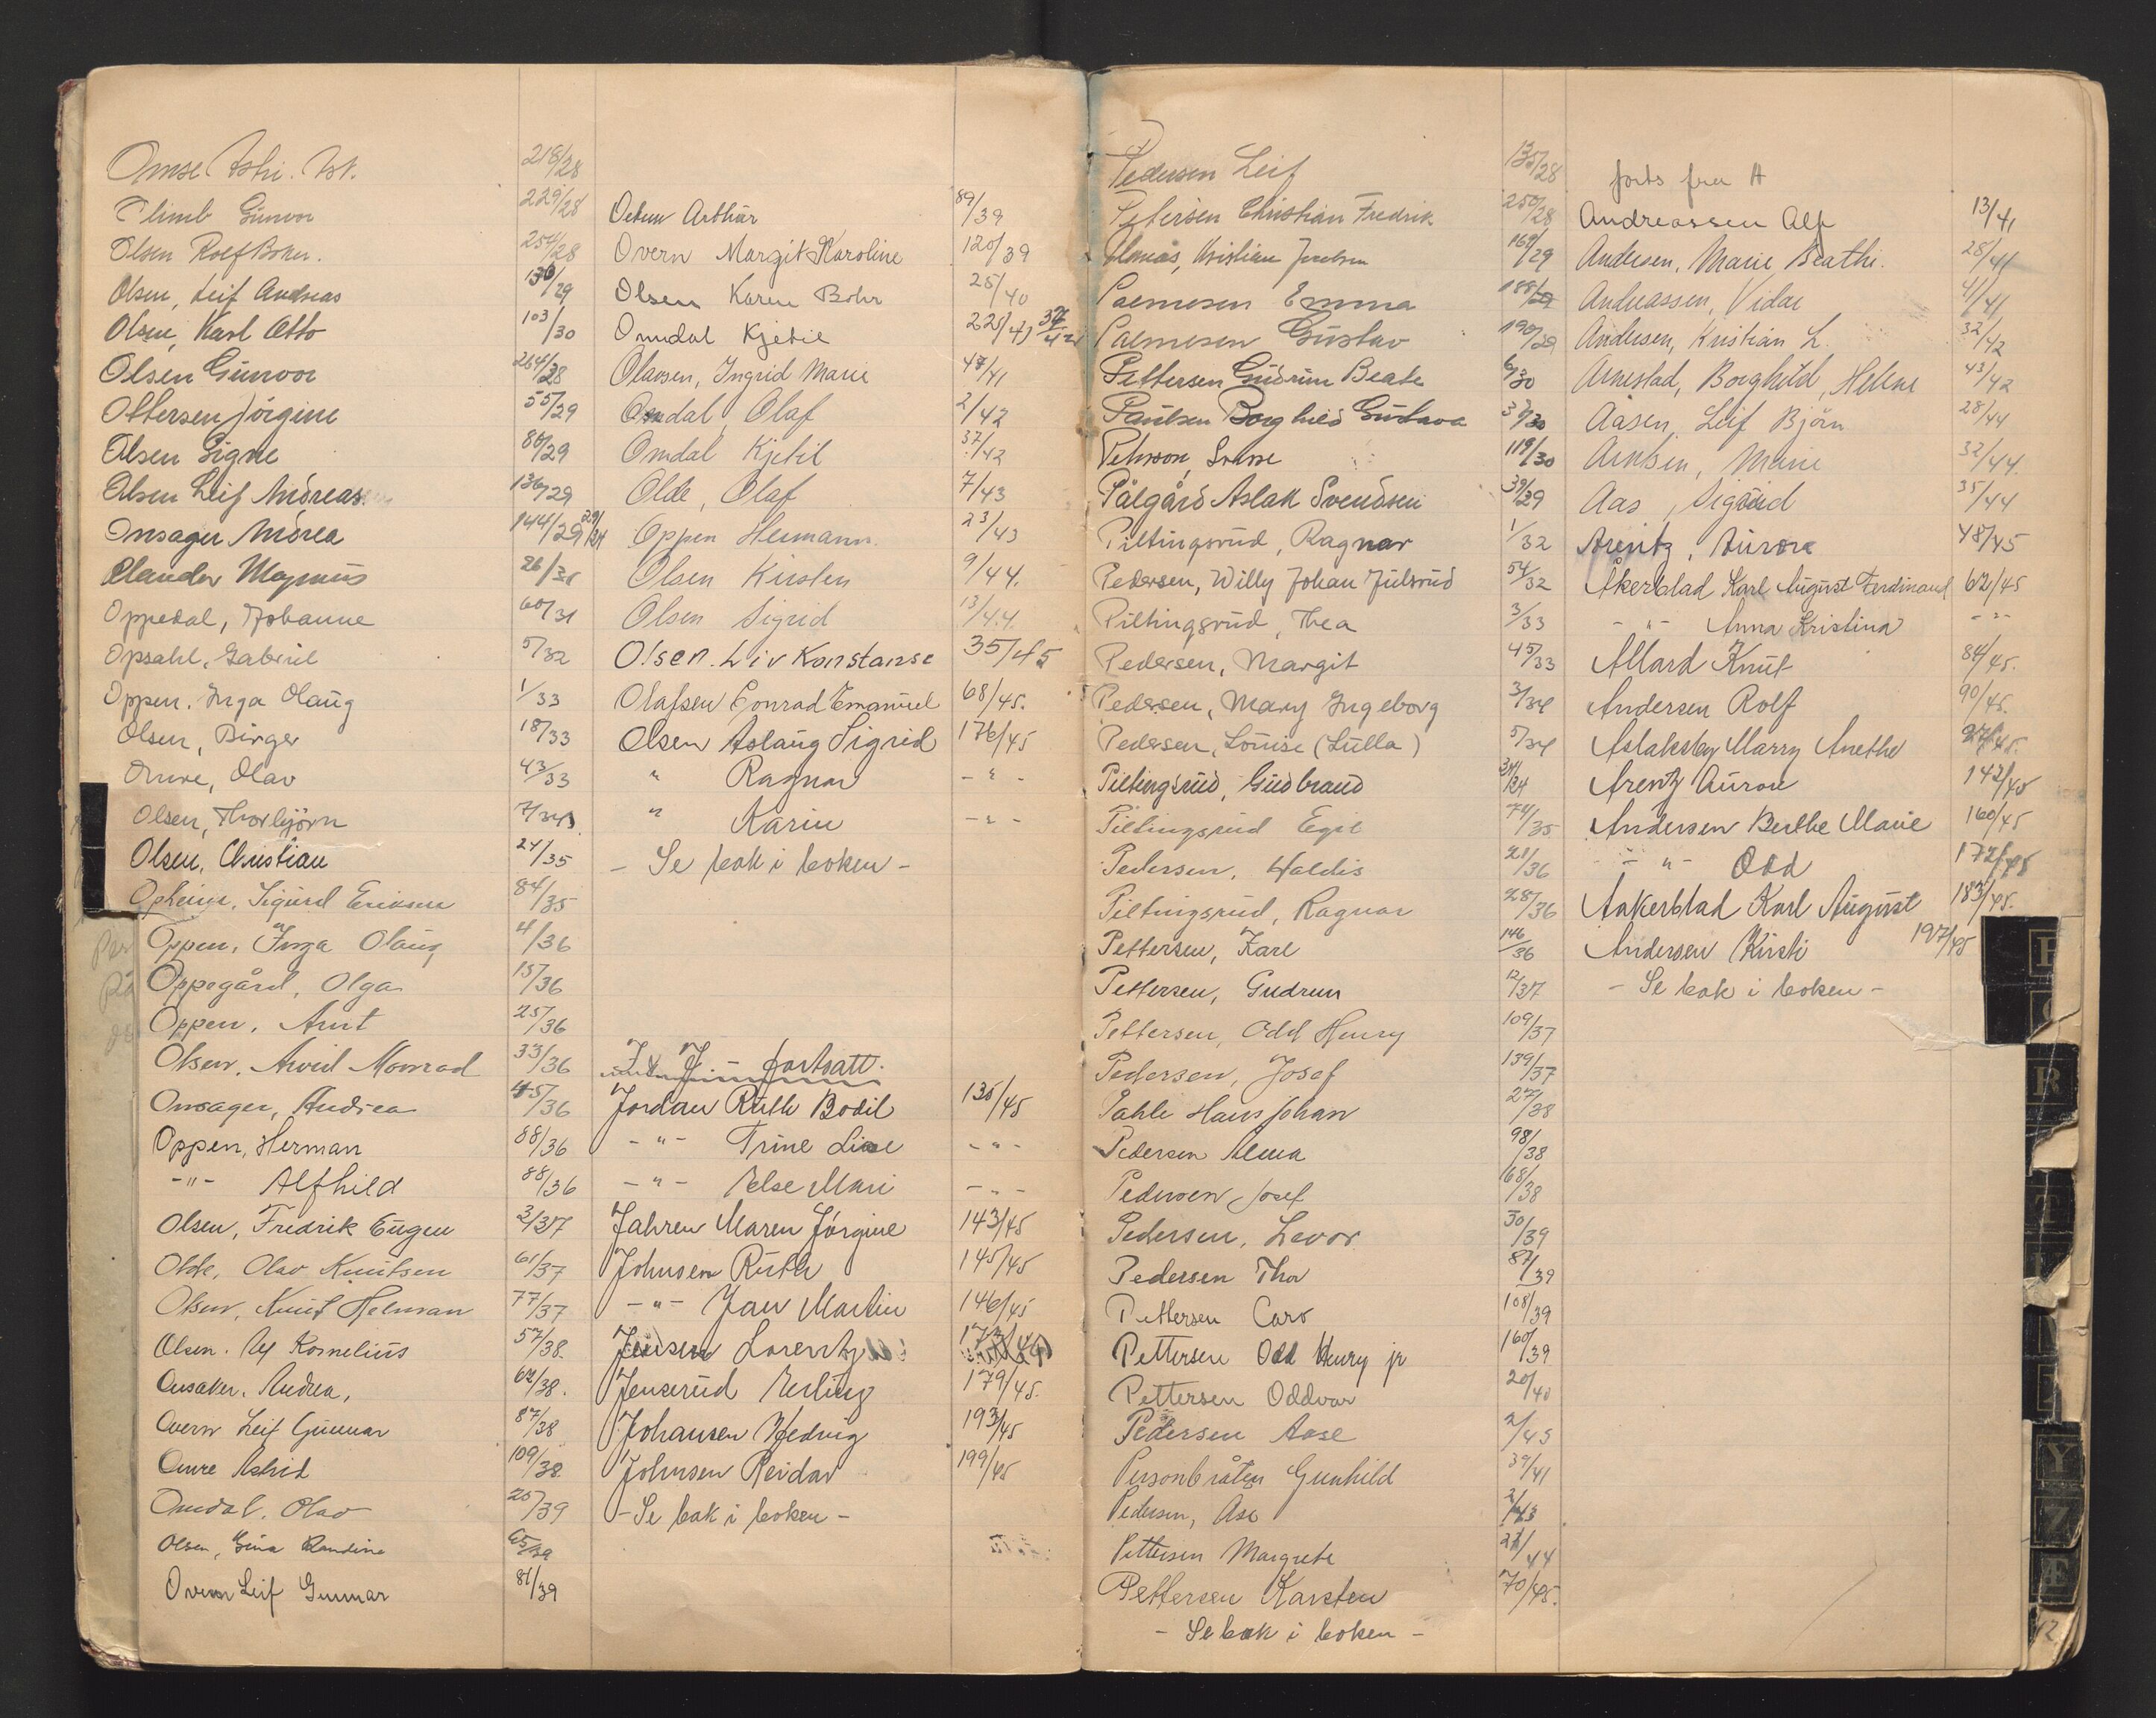 Omse 218/28
Gunvor 229/28
Olsen Rolf 254/28
Olsen, Leif Andreas 136/29
Olsen, Karl Otto 103/30
Olsen Gunvor 264/28
Ottersen Jörgine 55/29
Olsen Signe 80/29
Olsen Leif Andreas 136/29
Onsager Andrea 144/29
Magnus 26/31
Oppedal, Johanne 60/31
Opsahl, Gabriel 5/32
Oppen, Inga Olaug 1/33
Olsen, Birger 18/33
Omre, Olav 43/33
Olsen, Thorbjörn 7/34
Olsen, Christian 24/35
Opheim, Sigurd Eriksen 84/35
Oppen, Inga Olaug 4/36
Oppegård, Olga 15/36
Oppen, Arnt 25/36
Olsen, Arvid Monrad 33/36
Onsager, Andrea 45/36
Oppen, Herman 88/36
-"- Alfhild 88/36
Olsen, Fredrik Eugen 3/37
Olde, Olav Knutsen 61/37
Olsen, Knut Helman 77/37
Olsen. Alf Kornelius 57/38.
Onsaker, Andrea, 62/38.
Overn Leif Gunnar 87/38
Omre Astrid 109/38
Omdal, Olav 25/39
Olsen, Gina Randine 65/39
Overn Leif Gunnar 81/39
Arthur 89/39
Overn Margit Karoline 120/39
Olsen Karen Bohr 25/40
Omdal Kjetil 22/41 37/42
Olavsen, Ingrid Marie 47/41
Omdal, Olaf 2/42
Omdal Kjetil 37/42
Olde, Olaf 7/43
Oppen Hermann. 23/43
Olsen Kirsten 9/44.
Olsen Sigrid 13/44
Olsen. Liv Konstanse 35/45
Olafsen Conrad Emanuel 68/45.
Olsen Aslaug Sigrid 176/45
" Ragnar -"-
" Karin -"-
- Se bak i boken -
J - fortsatt.
Jordan Ruth Bodil 135/45
-"- Trine Lise -"-
-"- Else Mari -"-
Jahren Maren Jörgine 143/45
Johnsen Ruth 145/45
-"- Jan Martin 146/45
Jensen Lorentz
Jenserud Erling 179/45.
Johansen Hedvig 193/45
Johnsen Reidar 199/45
- Se bak i boken -
Pedersen Leif 135/28
Petersen Christian Fredrik 250/28
Kristian 169/29
Palmesen Emma 188/29
Palmesen Gustav 190/29
Pettersen Gudrun Beate 6/30
Paulsen Borghild Gustava 37/30
119/30
Pålgård Aslak Svendsen 39/29
Piltingsrud, Ragnar 1/32
Pedersen, Willy Johan Julsrud 54/32
Piltingsrud, Thea 3/33
Pedersen, Margit 45/33
Pedersen, Mary Ingeborg 3/34
Pedersen, Louise (Lulla) 5/34
Piltingsrud, Gudbrand 31/34
Piltingsrud Egil 74/35
Pedersen, Haldis 21/36
Piltingsrud, Ragnar 28/36
Pettersen, Karl 146/36
Pettersen, Gudrun 12/37
Pettersen, Odd Henry 109/37
Pedersen, Josef 139/37
Pahle Hans Johan 27/38
Pedersen Alma 98/38
Pedersen Josef 68/38
Pedersen, Levor 30/39
Pedersen Thor 87/39
Pettersen Caro 108/39
Pettersen Odd Henry jr 160/39
Pettersen Oddvar 20/40
Pedersen Aase 2/43
Personbråten Gunhild 39/41
Pedersen, Ase 2/43
Pettersen Margrete 22/44
Pettersen Karsten 70/45.
- Se bak i boken -
forts fra A
Andreassen Alf 13/41
Andersen, Marie Beathe. 28/41
Andreassen, Vidar 41/41
Andersen, Kristian L. 32/42
Arnestad, Borghild, Helene 43/42
Aasen, Leif Björn 28/44
Arntsen, Marie 32/44.
Aas, Sigurd 35/44
Arentz, Aurora 48/45
Åkerblad Karl August Ferdinand 62/45
-"- Anna Kristina -"-
Allard Knut 84/45.
Andersen Rolf 90/45.
Marry Anethe
Arentz Aurora 142/45
Andersen Berthe Marie 160/45
-"- Odd 172/45
Aakerblad Karl August 183/45.
Andersen Kirsti 197/45
- Se bak i boken -
R
T
Y
Z
Æ